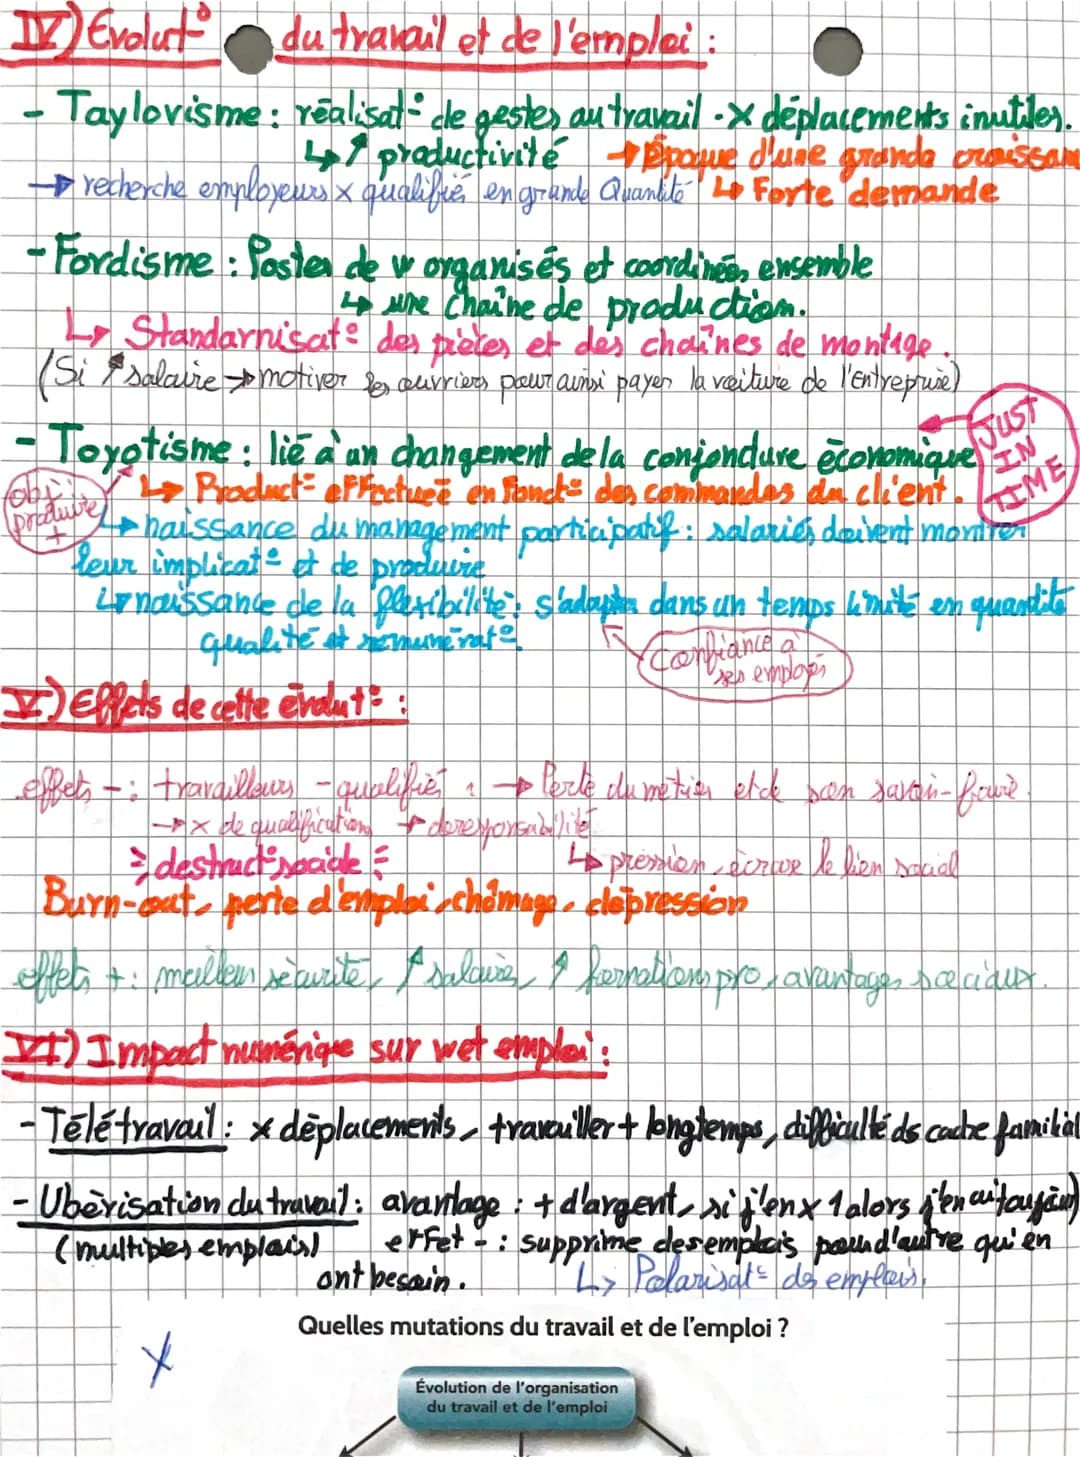 IV) Evolut° du travail et de l'emploi :
- Taylorisme : réalisat° de gestes au travail - X déplacements inutiles.
↳ ↗ productivité → Époque d'une grande croissan
→ recherche employeurs x qualifié en grande Quantité ↳ Forte demande
- Fordisme : Postes de w organisés et coordinées ensemble
↳ une chaîne de production.
↳ Standarnisat° des pièces et des chaînes de montage.
(Si ↗ salaire → motiver ses ouvriers pour ainsi payer la voiture de l'Entreprise)
- Toyotisme : lié à un changement de la conjoncture économique
JUST IN TIME
obj produire +
↳ Product° effectuée en Fonct° des commandes du client.
↳ naissance du management participatif : salariés doivent montrer
leur implicat° et de produire
↳ naissance de la flexibilité : s'adapter dans un temps limité en quantité
qualité et rémunérat°
Confiance à ses employés
V) Effets de cette évolut° :
effets - : travailleurs - qualifiés → Perte du métier et de son savoir-faire.
→ x de qualification → deresponsabilité
destruct° sociale ↳ pression, écrase le lien social
Burn-out, perte d'emploi, chômage, dépression
effets + : meilleur sécurité, ↗ salaires, ↗ formations pro, avantages sociaux.
VI) Impact numérique sur w et emploi :
- Télétravail : x déplacements, travailler + longtemps, difficulté ds cadre familial
- Ubérisation du travail : avantage : + d'argent, si j'en x 1 alors j'en ai toujours)
(multiples emplois) effet - : supprime des emplois pour d'autre qui en
ont besoin. ↳ Polarisat° des emplois.
Quelles mutations du travail et de l'emploi ?
X
Évolution de l'organisation
du travail et de l'emploi